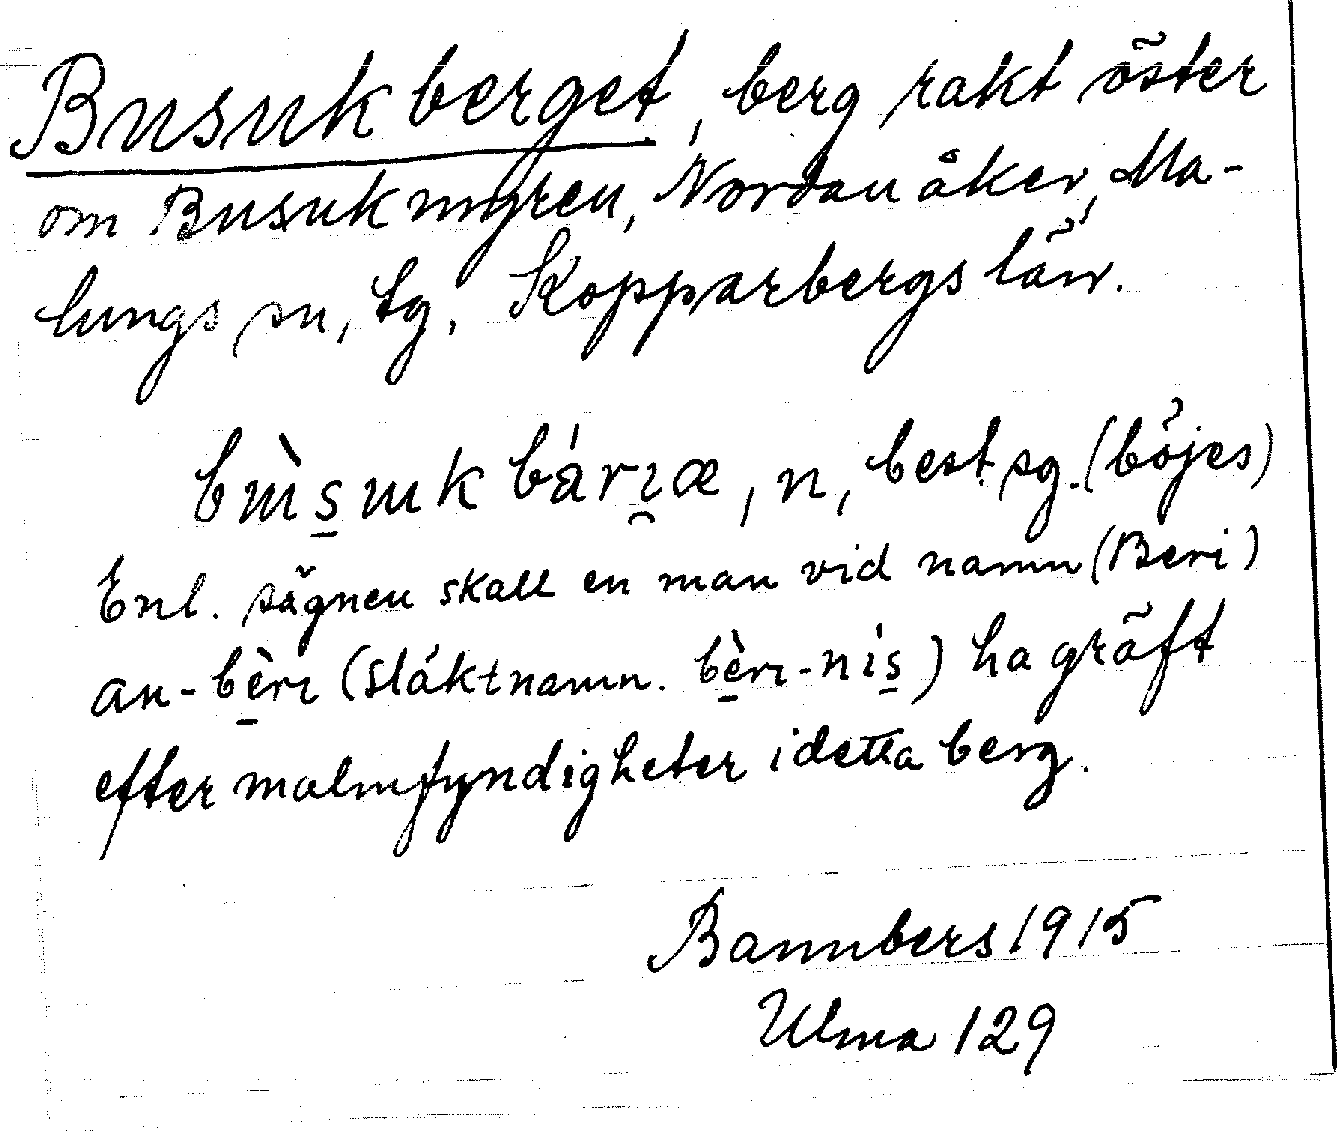 Busukberget, berg rakt öster
om Busukmyren, Nordanåker, Ma-
lungs sn, tg. Kopparbergs län.
n, best. sg. (böjes)
Enl. sägnen skall en man vid namn (Beri)
an-bèrı (släktnamn. bèrı-nìs) ha gräft
efter malmfyndigheter i detta berg.
Bannbers 1915
Ulma 129